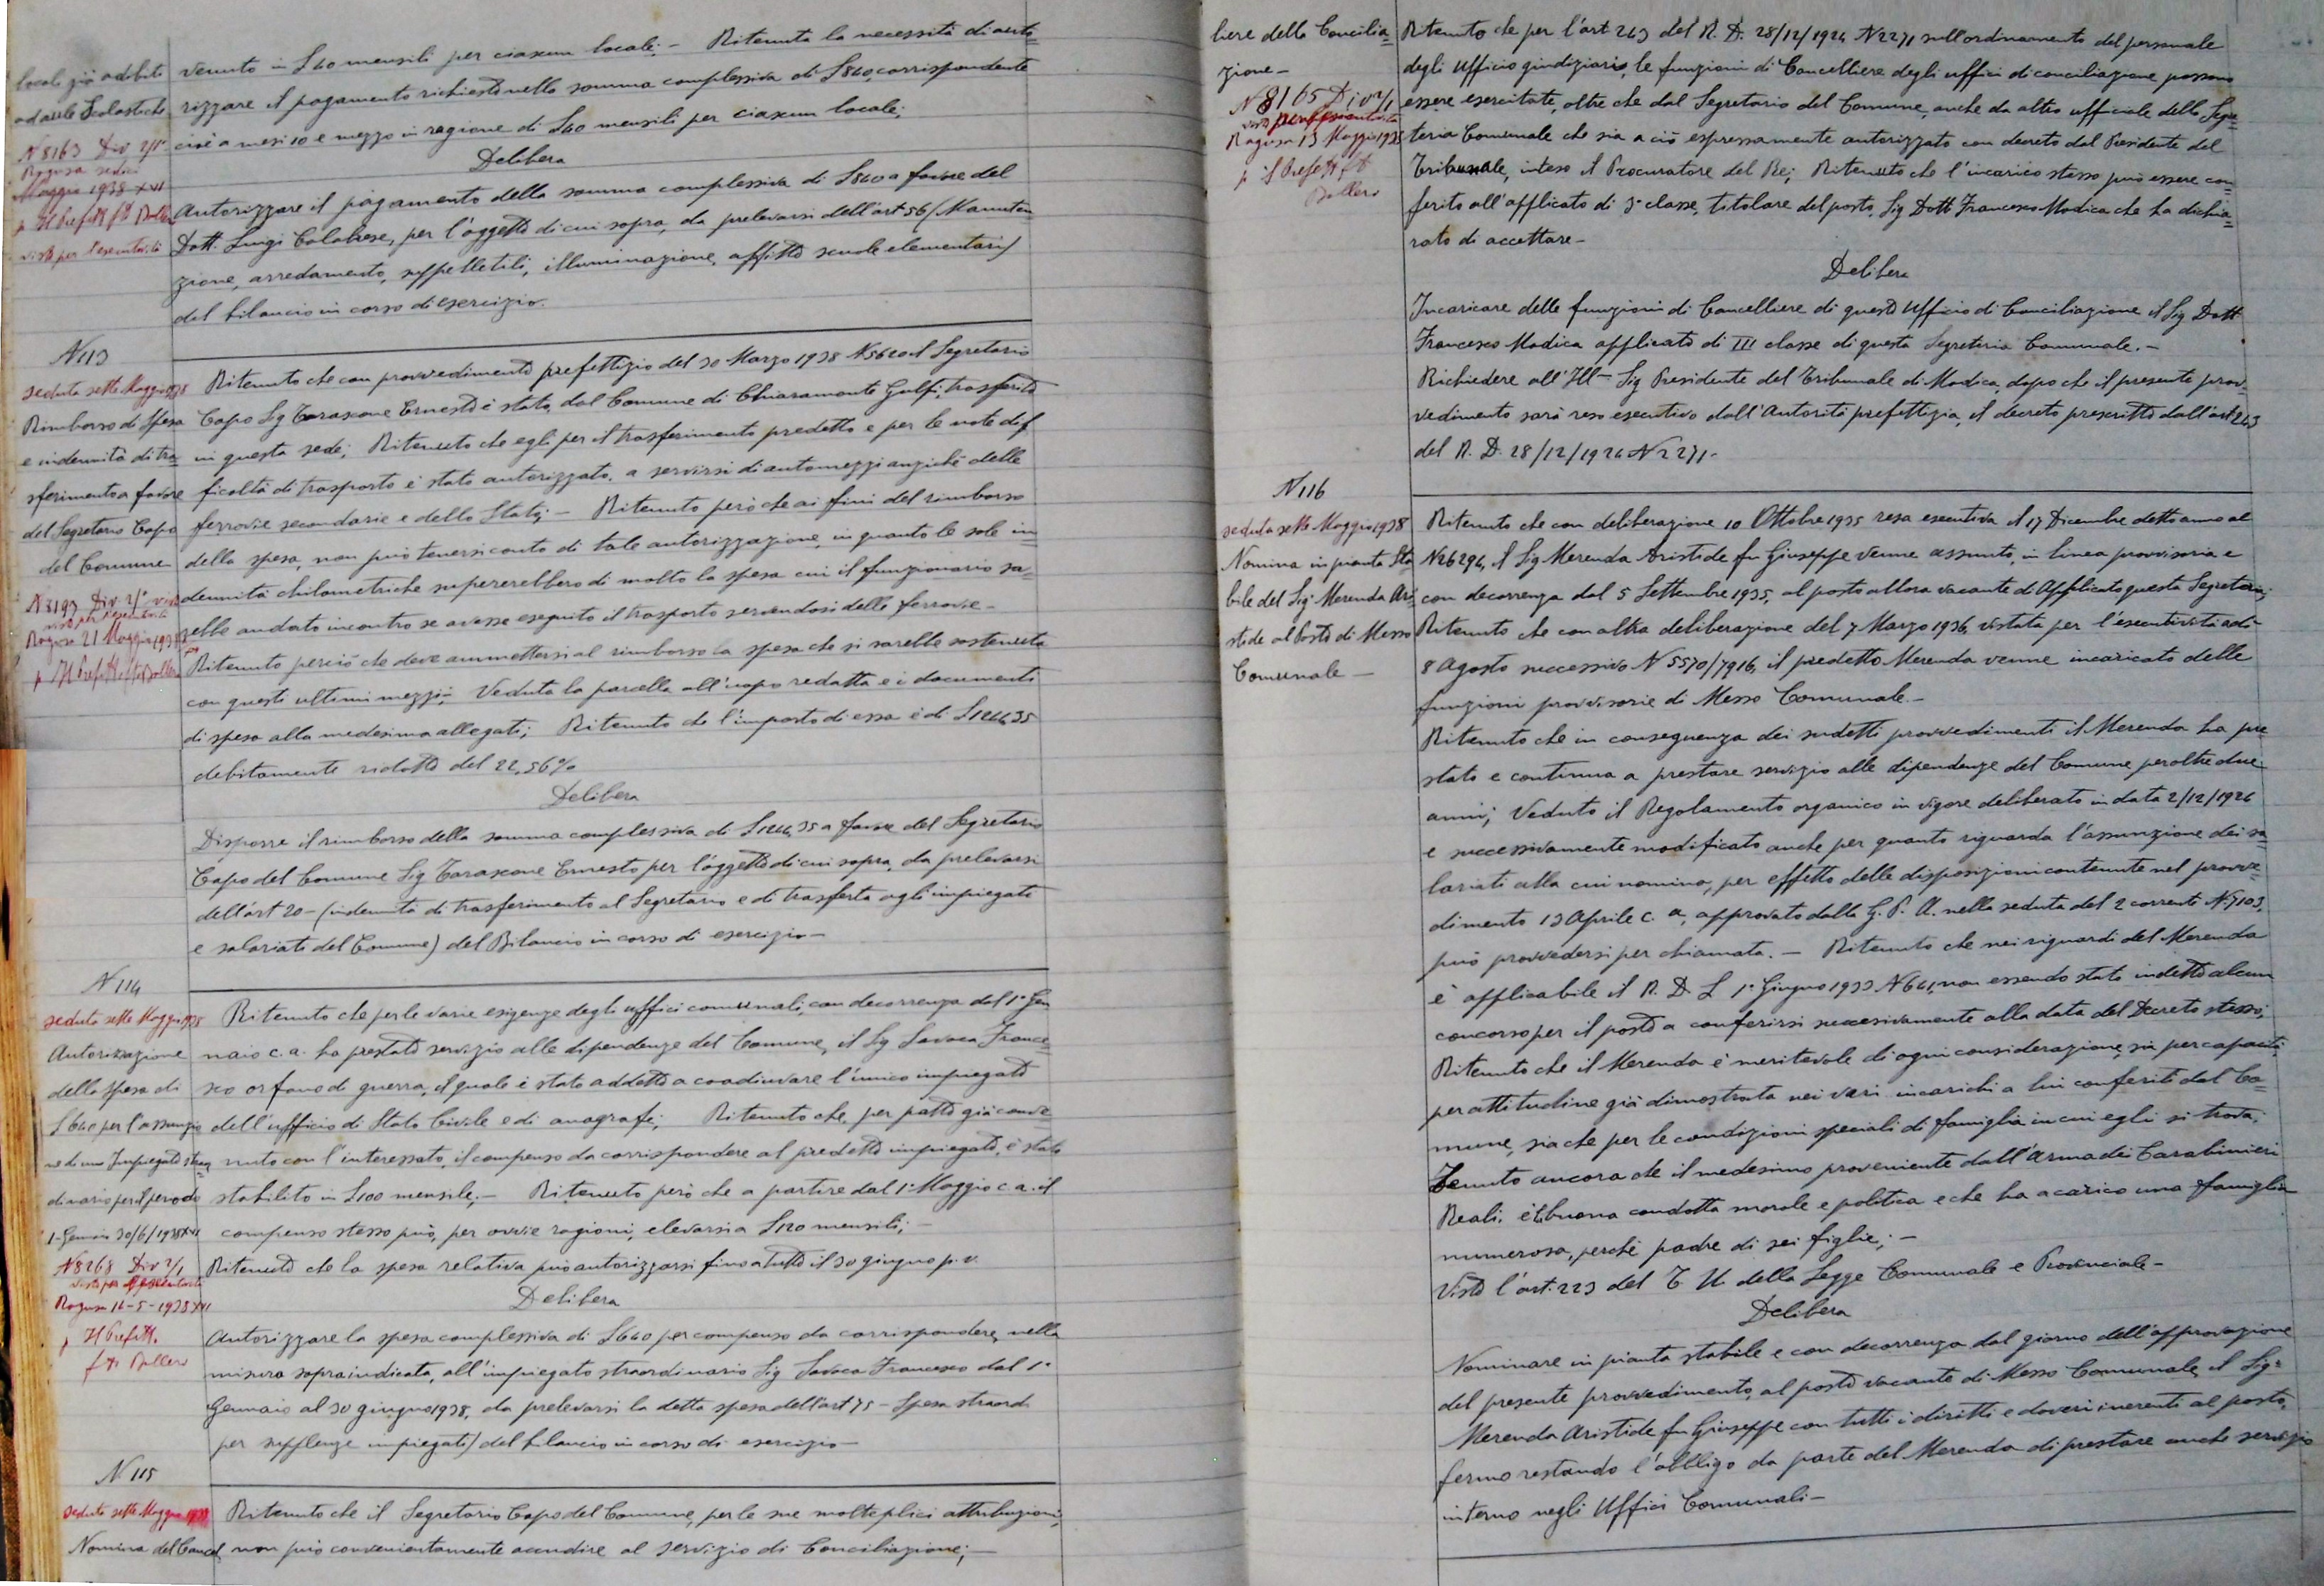 locali già adibiti
ad aule Scolastiche
N 8163 Div 2/1ª
Ragusa sedici
Maggio 1938 XVI
p Il Prefetto fto
visto per l'esecutività
venuto in £ 40 mensili per ciascun locale; - Ritenuta la necessità di auto=
rizzare il pagamento richiesto nella somma complessiva di £ 840 corrispondente
cioè a mesi 10 e mezzo in ragione di £ 40 mensili per ciascun locale;
Delibera
Autorizzare il pagamento della somma complessiva di £ 840 a favore del
Dott. Luigi Calabrese, per l'oggetto di cui sopra, da prelevarsi dell'art 56 (Manuten
zione, arredamento, suppellettili, illuminazione, affitto scuole elementari)
del bilancio in corso di esercizio.
N 113
seduta sette Maggio 1938
Rimborso di Spesa
e indennità di tra=
sferimento a favore
del Segretario Capo
del Comune
N 8193 Div 2/1ª
visto per l'esecutività
Ragusa 21 Maggio 1938
p Il Prefetto
Ritenuto che con provvedimento prefettizio del 30 Marzo 1938 N 5620 il Segretario
Capo Sig Tarascone Ernesto è stato, dal Comune di Chiaramonte Gulfi, trasferito
in questa sede; Ritenuto che egli per il trasferimento predetto e per le note dif
ficoltà di trasporto è stato autorizzato, a servirsi di automezzi anzichè delle
ferrovie secondarie e dello Stato; - Ritenuto però che ai fini del rimborso
della spesa, non può tenersi conto di tale autorizzazione, in quanto le sole in=
dennità chilometriche supererebbero di molto la spesa cui il funzionario sa=
rebbe andato incontro se avesse eseguito il trasporto servendosi delle ferrovie -
Ritenuto perciò che deve ammettersi al rimborso la spesa che si sarebbe sostenuta
con questi ultimi mezzi; Veduta la parcella all'uopo redatta e i documenti
di spesa alla medesima allegati; Ritenuto che l'importo di essa è di £ 1244,35
debitamente ridotto del 22,56%
Delibera
Disporre il rimborso della somma complessiva di £ 1244,35 a favore del Segretario
Capo del Comune Sig Tarascone Ernesto per l'oggetto di cui sopra, da prelevarsi
dell'art 20 - (indennità di trasferimento al Segretario e di trasferta agli impiegati
e salariati del Comune) del Bilancio in corso di esercizio -
N 114
seduta sette Maggio 1938
Autorizzazione
della spesa di
£ 640 per l'assunzio
ne di uno Impiegato straor
dinario per il periodo
1 - Gennaio 30/6/1938 XVI
N 8268 Div 2/1
visto per
Ragusa 16-5-1938 XVI
p Il Prefetto
fto
Ritenuto che per le varie esigenze degli uffici comunali, con decorrenza dal 1° Gen
naio c.a. ha prestato servizio alle dipendenze del Comune, il Sig Savoca France=
sco orfano di guerra, il quale è stato addetto a coadiuvare l'unico impiegato
dell'ufficio di Stato Civile e di anagrafe; Ritenuto che, per patto già conve=
nuto con l'interessato, il compenso da corrispondere al predetto impiegato, è stato
stabilito in £ 100 mensile; - Ritenuto però che a partire dal 1° Maggio c.a. il
compenso stesso può, per ovvie ragioni, elevarsi a £ 120 mensili; -
Ritenuto che la spesa relativa può autorizzarsi fino a tutto il 30 giugno p.v.
Delibera
Autorizzare la spesa complessiva di £ 640 per compenso da corrispondere, nella
misura sopraindicata, all'impiegato straordinario Sig Savoca Francesco dal 1°
Gennaio al 30 giugno 1938, da prelevarsi la detta spesa dell'art 75 - Spesa straord.
per supplenze impiegati) del bilancio in corso di esercizio -
N 115
seduta sette Maggio 1938
Nomina del Cancel
Ritenuto che il Segretario Capo del Comune, per le sue molteplici attribuzioni,
non può convenientemente accudire al servizio di Conciliazione; -
liere della Concilia=
zione -
N 8165 Div 2/1
visto per l'esecutività
Ragusa 13 Maggio 1938
p il Prefetto
Ritenuto che per l'art 243 del R. D. 28/12/1924 N 2271 sull'ordinamento del personale
degli ufficio giudiziario, le funzioni di Cancelliere degli uffici di conciliazione possono
essere esercitate, oltre che dal Segretario del Comune, anche da altro ufficiale della Segre=
teria Comunale che sia a ciò espressamente autorizzato con decreto dal Presidente del
Tribunale, inteso il Procuratore del Re; Ritenuto che l'incarico stesso può essere con
ferito all'applicato di 3ª classe, titolare del posto, Sig Dott Francesco Modica che ha dichia=
rato di accettare -
Delibera
Incaricare delle funzioni di Cancelliere di questo Ufficio di Conciliazione il Sig Dott
Francesco Modica applicato di III classe di questa Segreteria Comunale. -
Richiedere all'Ill- Sig Presidente del Tribunale di Modica, dopo che il presente prov=
vedimento sarà reso esecutivo dall'Autorità prefettizia, il decreto prescritto dall'art 243
del R. D. 28/12/1924 N 2271-
N 116
seduta sette Maggio 1938
Nomina in pianta Sta
bile del Sig. Merenda Ari=
stide al Posto di Messo
Comunale -
Ritenuto che con deliberazione 10 Ottobre 1935 resa esecutiva il 17 Dicembre detto anno al
N 26294, il Sig Merenda Aristide fu Giuseppe venne assunto, in linea provvisoria e
con decorrenza dal 5 Settembre 1935, al posto allora vacante di Applicato questa Segreteria;
Ritenuto che con altra deliberazione del 7 Marzo 1936, vistata per l'esecutività addì
8 Agosto successivo N 5570/7916, il predetto Merenda venne incaricato delle
funzioni provvisorie di Messo Comunale. -
Ritenuto che in conseguenza dei sudetti provvedimenti il Merenda ha pre
stato e continua a prestare servizio alle dipendenze del Comune per oltre due
anni; Veduto il Regolamento organico in vigore deliberato in data 2/12/1926
e successivamente modificato anche per quanto riguarda l'assunzione dei sa=
lariati alla cui nomina, per effetto delle disposizioni contenute nel provve=
dimento 13 Aprile c. a, approvato dalla G. P. A. nella seduta del 2 corrente N. 7103,
può provvedersi per chiamata. - Ritenuto che nei riguardi del Merenda
è applicabile il R. D. L 1° Giugno 1933 N 641, non essendo stato indetto alcun
concorso per il posto a conferirsi successivamente alla data del Decreto stesso;
Ritenuto che il Merenda è meritevole di ogni considerazione, sia per capacità,
per attitudine già dimostrata nei vari incarichi a lui conferiti dal Co=
mune, sia che per le condizioni speciali di famiglia in cui egli si trova;
Tenuto ancora che il medesimo proveniente dall'Arma dei Carabinieri
Reali, è di buona condotta morale e politica e che ha a carico una famiglia
numerosa, perchè padre di sei figlie; -
Visto l'art. 223 del T. U. della Legge Comunale e Provinciale -
Delibera
Nominare in pianta stabile e con decorrenza dal giorno dell'approvazione
del presente provvedimento, al posto vacante di Messo Comunale, il Sig=
Merenda Aristide fu Giuseppe con tutti i diritti e doveri inerenti al posto,
fermo restando l'obbligo da parte del Merenda di prestare anche servizio
interno negli Uffici Comunali -